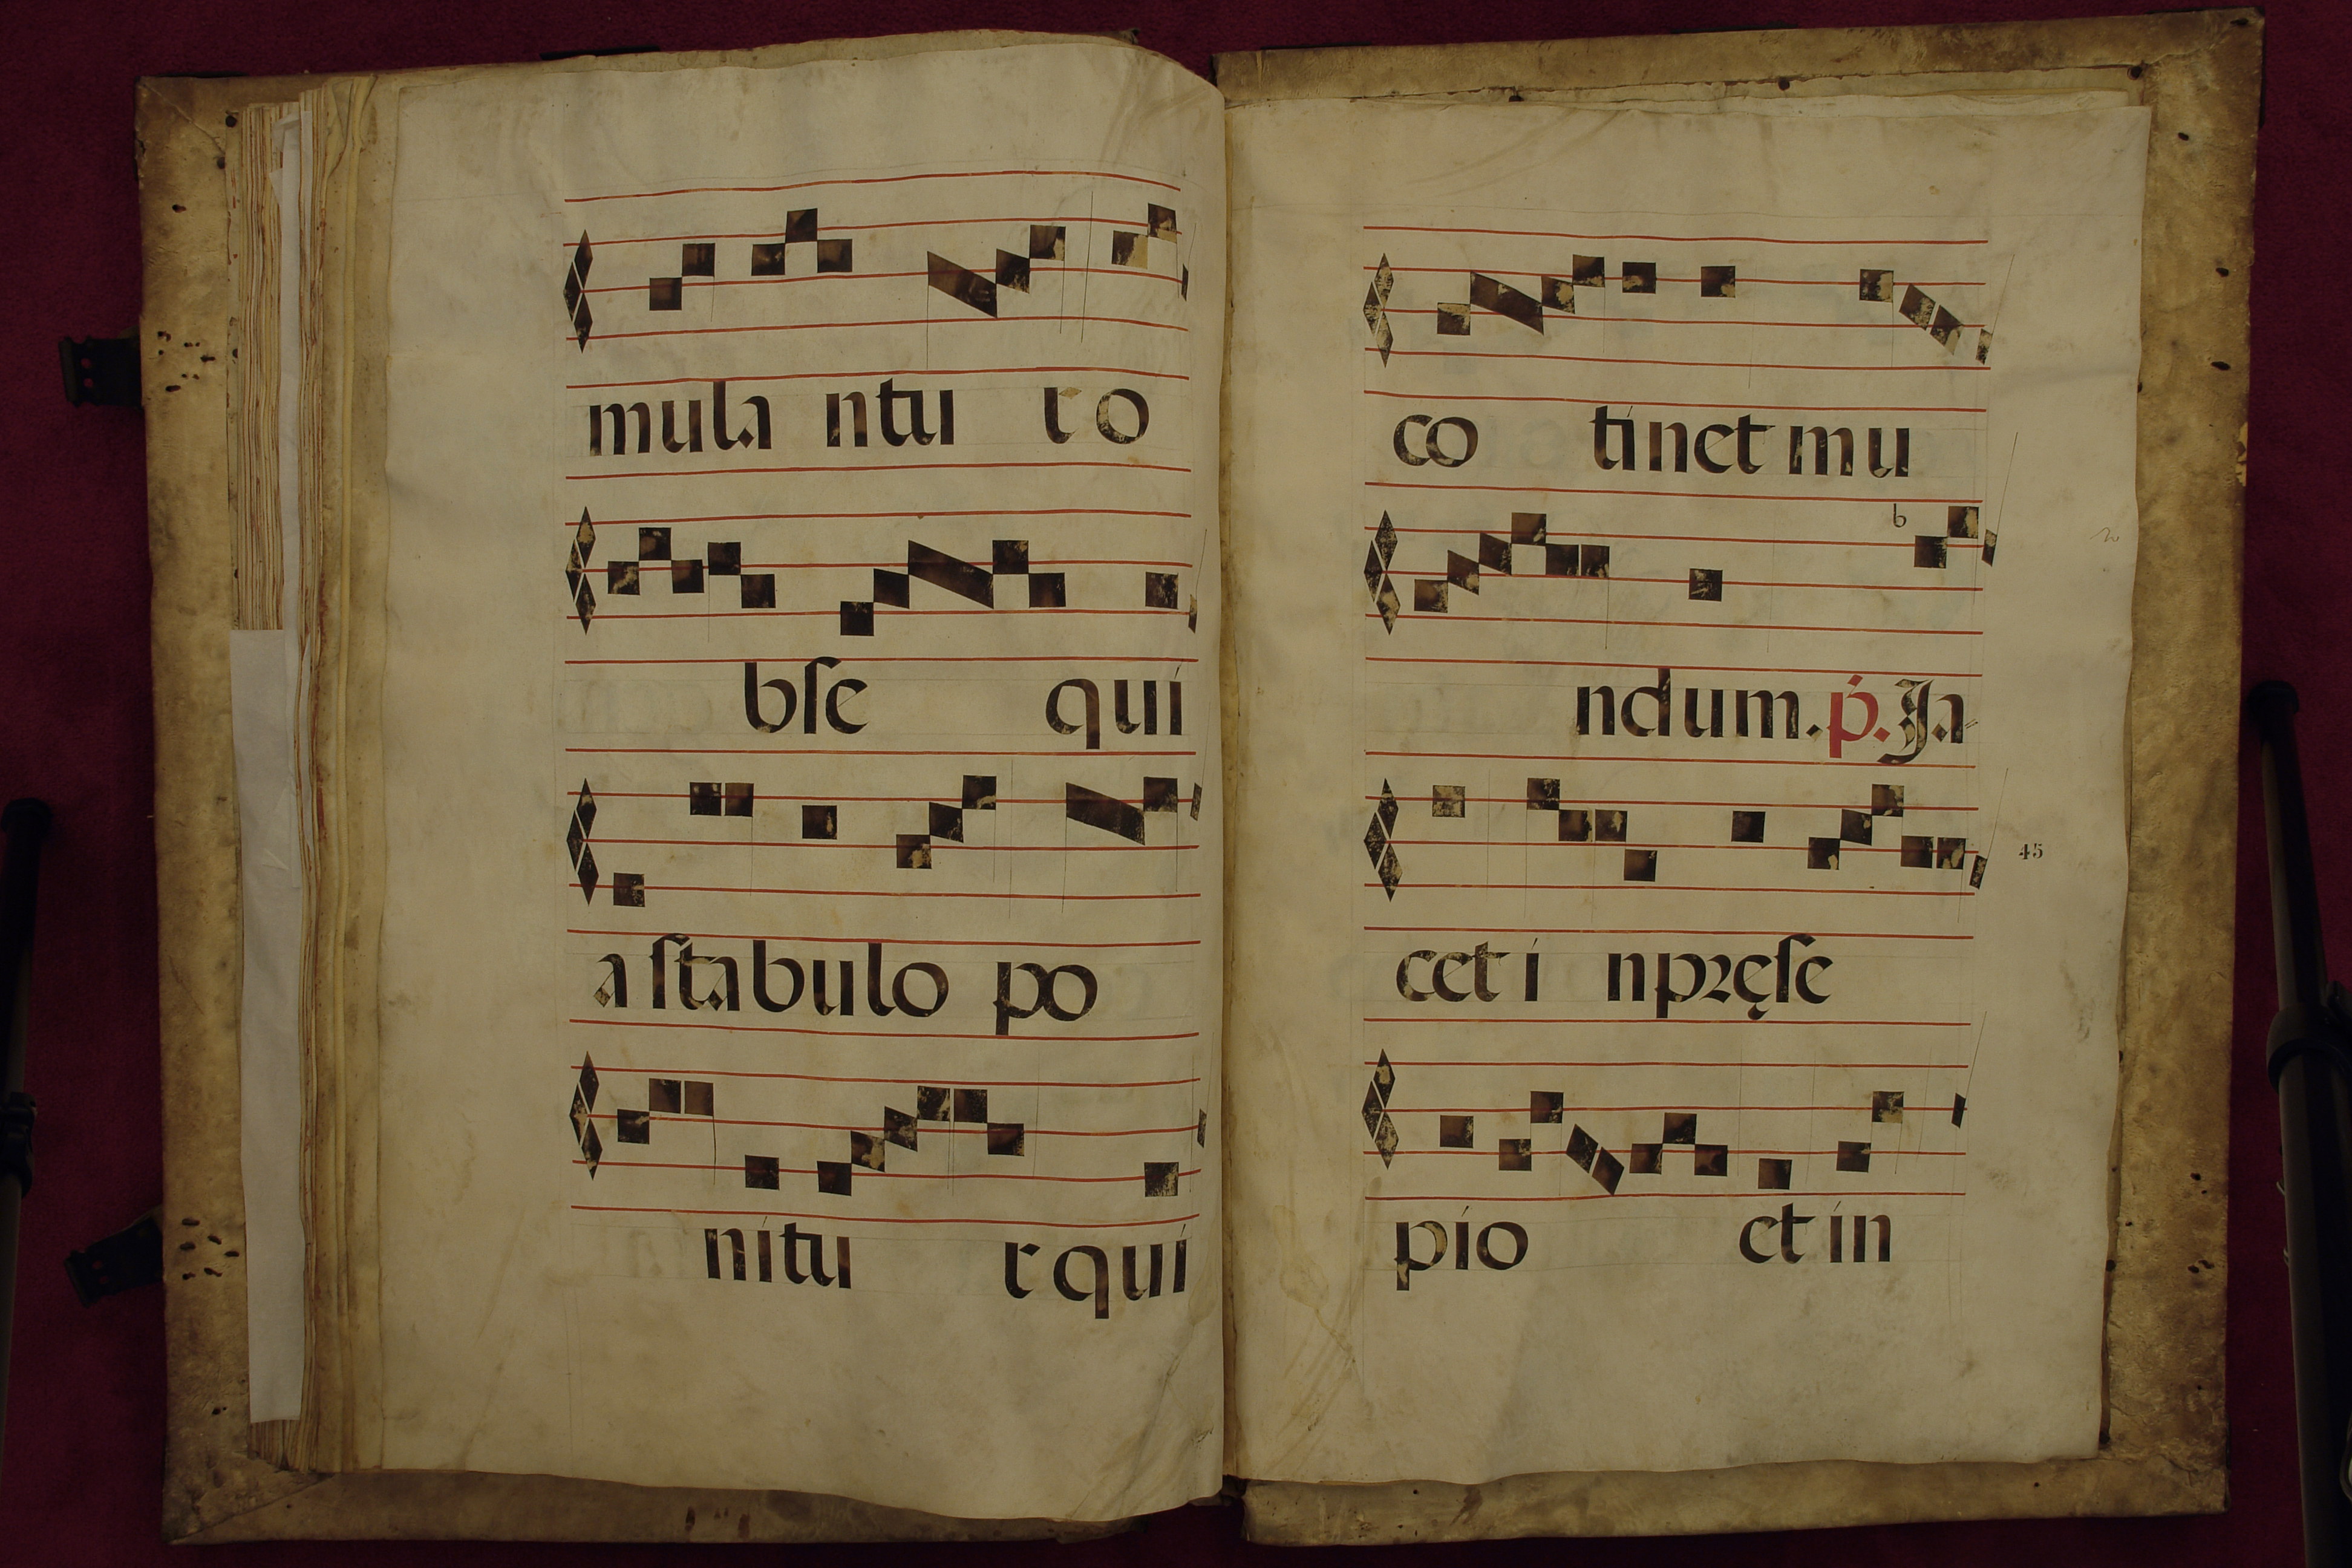 mula ntu r o
bſe qui
a ſtabulo po
nitu r qui
co tinet mu
b
ndum. p. Ja
45
cet i npręſe
pio et in